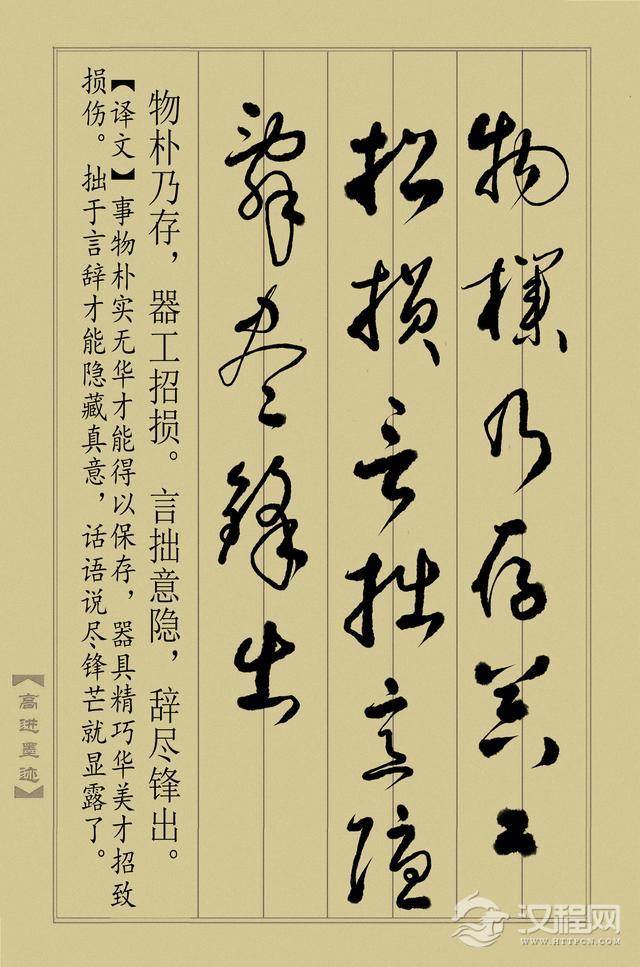 物朴乃存器工
招损言拙意隐
辞尽锋出
物朴乃存，器工招损。言拙意隐，辞尽锋出。
【译文】事物朴实无华才能得以保存，器具精巧华美才招致
损伤。拙于言辞才能隐藏真意，话语说尽锋芒就显露了。
【高进墨迹】
汉程网
WWW.HTTPCN.COM